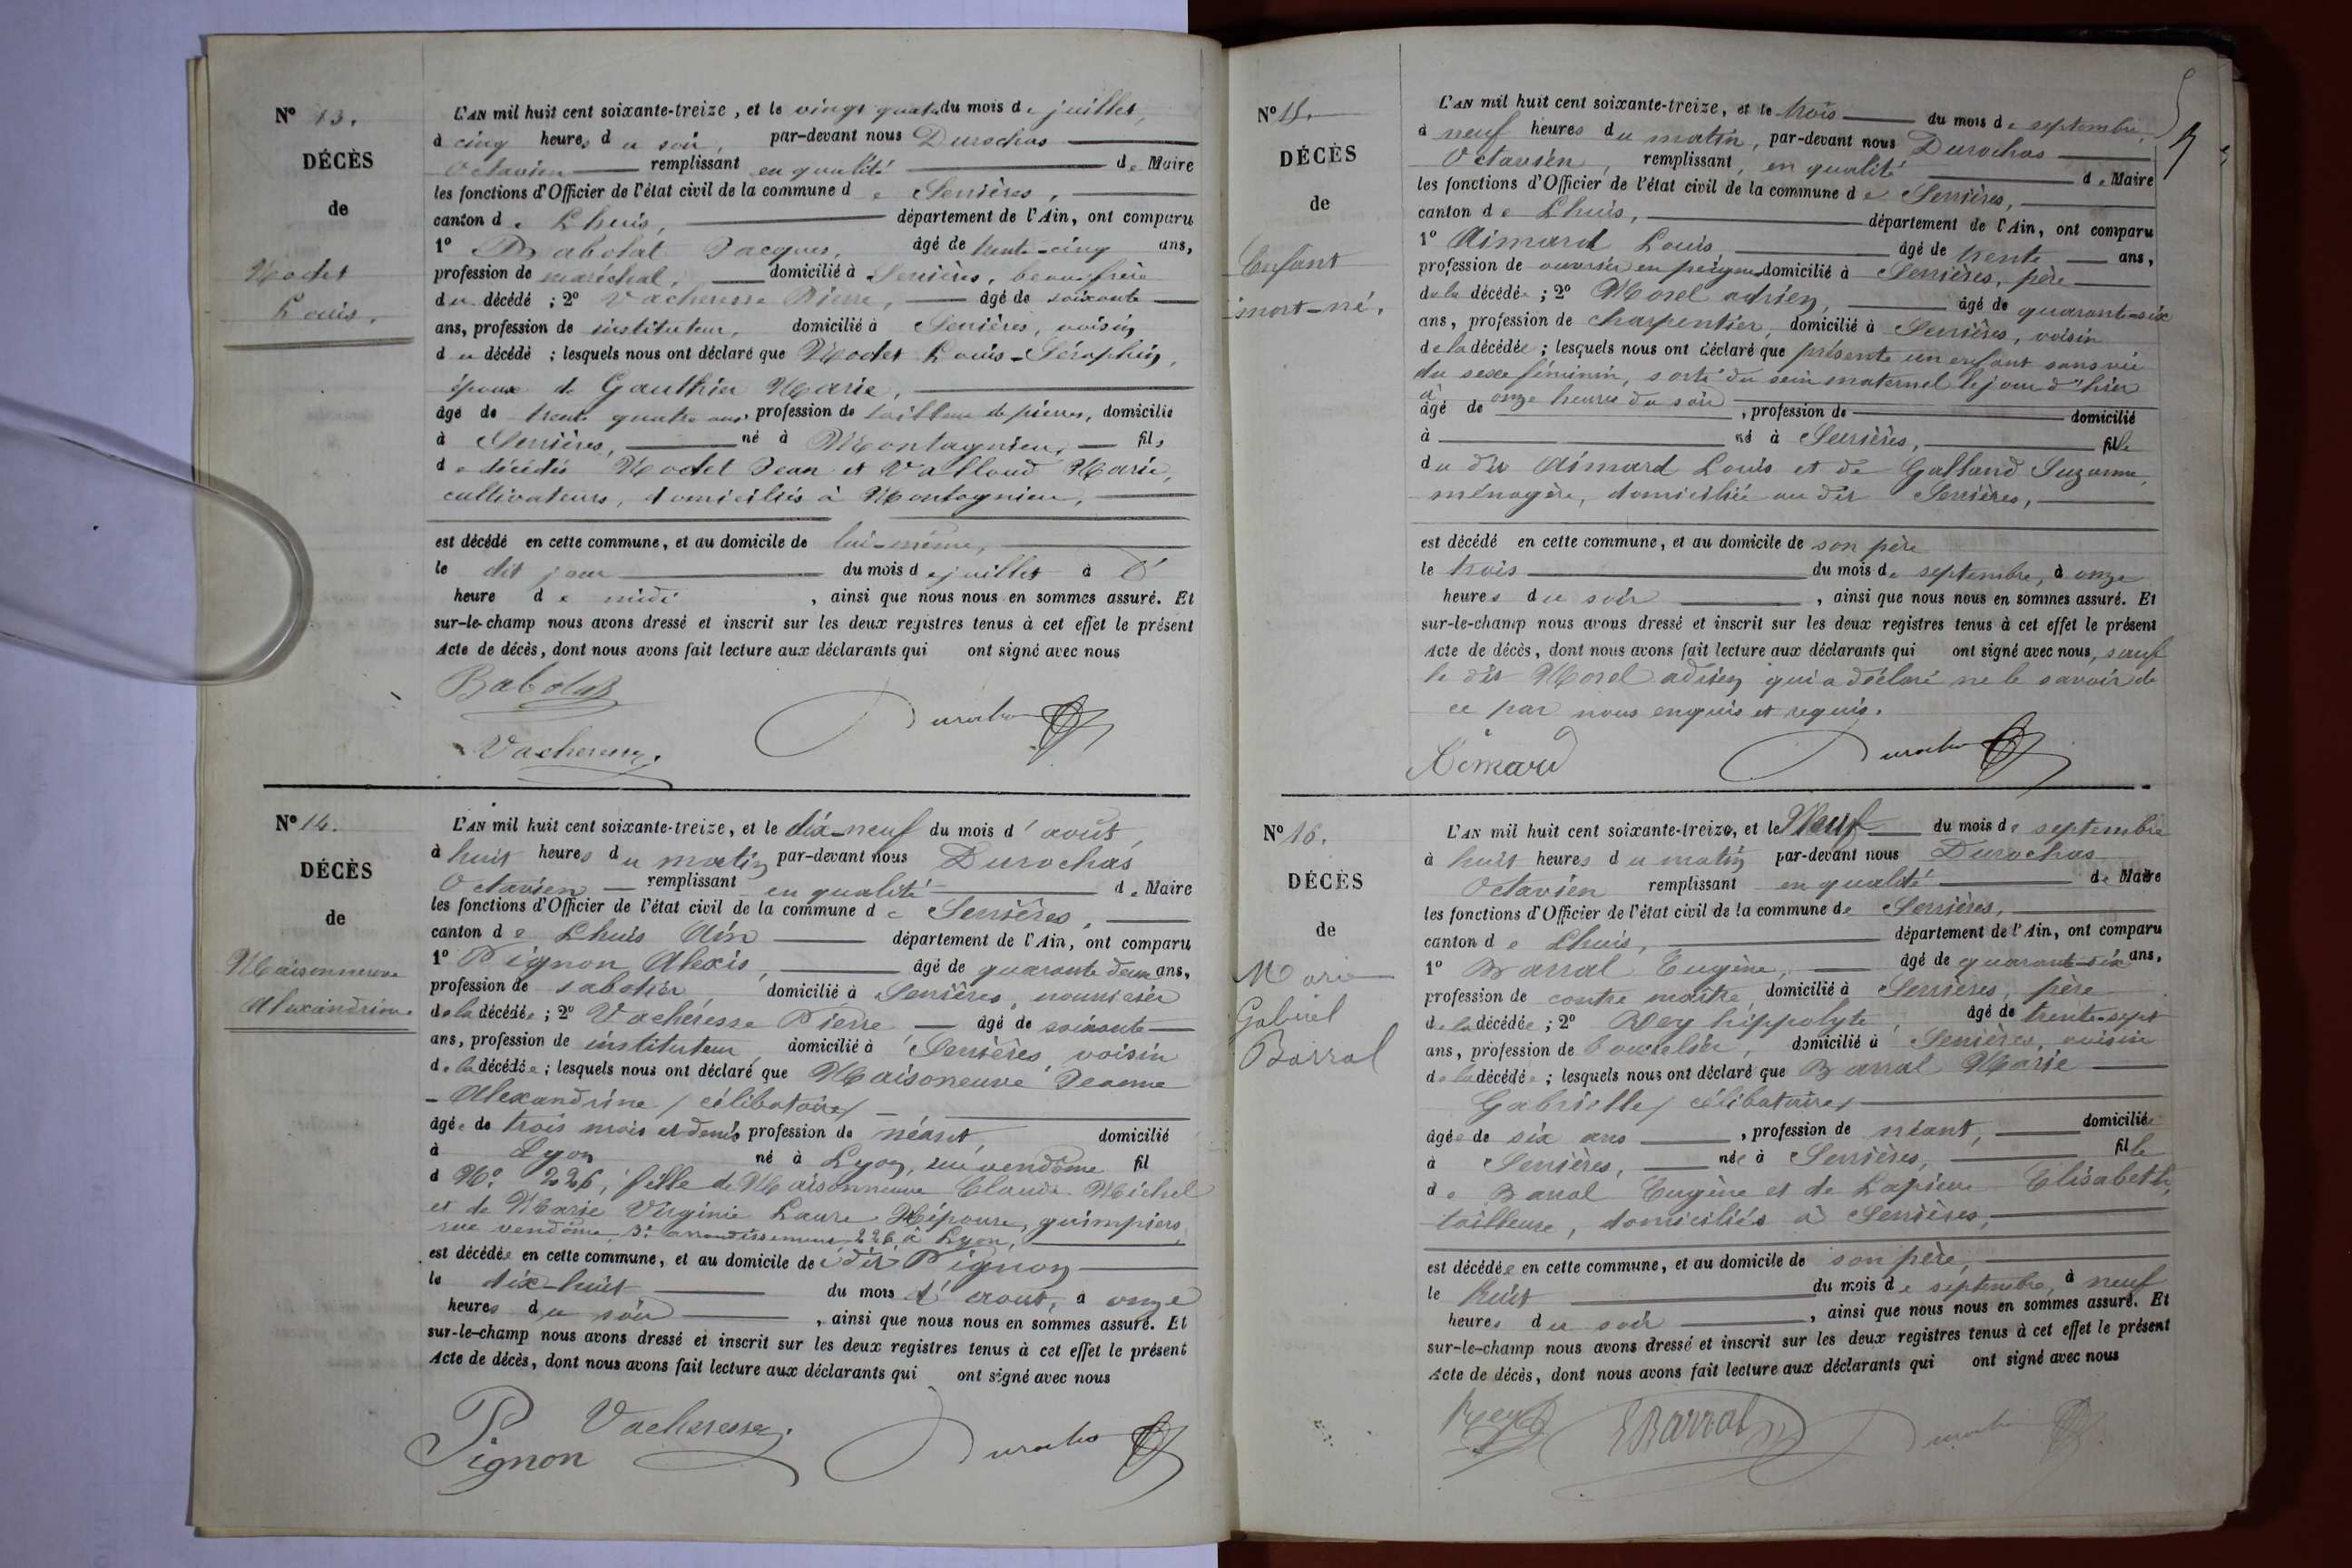 N° 13.
DÉCÈS
de
Modet
Louis.
L'AN mil huit cent soixante-treize, et le vingt quatre du mois de juillet,
à cinq heures du soir, par-devant nous Durochas
Octavien remplissant en qualité de Maire
les fonctions d'Officier de l'état civil de la commune de Serrières,
canton de Lhuis, département de l'Ain, ont comparu
1° Babolat Jacques, âgé de trente-cinq ans,
profession de maréchal, domicilié à Serrières, beau-frère
du décédé ; 2° Vacheresse Pierre, âgé de soixante
ans, profession de instituteur, domicilié à Serrières, voisin
du décédé ; lesquels nous ont déclaré que Modet Louis-Séraphin,
époux de Gauthier Marie,
âgé de trente quatre ans profession de tailleur de pierres, domicilié
à Serrières, né à Montagnieu, fils
de décédés Modet Jean et Valloud Marie,
cultivateurs, domiciliés à Montagnieu,
est décédé en cette commune, et au domicile de lui-même,
le dit jour du mois de juillet à
heure de midi, ainsi que nous nous en sommes assuré. Et
sur-le-champ nous avons dressé et inscrit sur les deux registres tenus à cet effet le présent
Acte de décès, dont nous avons fait lecture aux déclarants qui ont signé avec nous
Babolat
Durochas
Vacheresse.
N° 14.
DÉCÈS
de
Maisonneuve
Alexandrine
L'AN mil huit cent soixante-treize, et le dix-neuf du mois d'août,
à huit heures du matin par-devant nous Durochas
Octavien remplissant en qualité de Maire
les fonctions d'Officier de l'état civil de la commune de Serrières,
canton de Lhuis Ain département de l'Ain, ont comparu
1° Pignon Alexis, âgé de quarante deux ans,
profession de sabotier domicilié à Serrières, nourricier
de la décédée ; 2° Vacheresse Pierre âgé de soixante
ans, profession de instituteur domicilié à Serrières voisin
de la décédée ; lesquels nous ont déclaré que Maisoneuve Jeanne
Alexandrine / célibataire /
âgée de trois mois et demis profession de néant, domicilié
à Lyon né à Lyon, rue vendôme fil
d N° 226, fille de Maisonneuve Claude Michel
et de Marie Virginie Laure guimpiers,
rue vendôme, 3e arrondissement 226 à Lyon,
est décédée en cette commune, et au domicile de dit Pignon
le dix-huit du mois d'aout, à onze
heures du soir, ainsi que nous nous en sommes assuré. Et
sur-le-champ nous avons dressé et inscrit sur les deux registres tenus à cet effet le présent
Acte de décès, dont nous avons fait lecture aux déclarants qui ont signé avec nous
Vacheresse.
Pignon
Durochas
N° 15.
DÉCÈS
de
Enfant
mort-né.
L'AN mil huit cent soixante-treize, et le trois du mois de septembre,
à neuf heures du matin, par-devant nous Durochas
Octavien, remplissant, en qualité de Maire
les fonctions d'Officier de l'état civil de la commune de Serrières,
canton de Lhuis, département de l'Ain, ont comparu
1° Aimard Louis, âgé de trente ans,
profession de ouvrier en peignes domicilié à Serrières, père
de la décédée ; 2° Morel adrien, âgé de quarante-six
ans, profession de charpentier, domicilié à Serrières, voisin
de la décédée ; lesquels nous ont déclaré que présente un enfant sans vie
du sexe féminin, sorti du sein maternel le jour d'hier
à onze heures du soir
âgé de, profession de domicilié
à né à Serrières, fille
du dit Aimard Louis et de Galland Suzanne,
ménagère, domiciliée au dit Serrières,
est décédé en cette commune, et au domicile de son père
le trois du mois de septembre, à onze
heures du soir, ainsi que nous nous en sommes assuré. Et
sur-le-champ nous avons dressé et inscrit sur les deux registres tenus à cet effet le présent
Acte de décès, dont nous avons fait lecture aux déclarants qui ont signé avec nous, sauf
le dit Morel adrien qui a déclaré ne le savoir de
ce par nous enquis et requis.
Aimard
Durochas
N° 16.
DÉCÈS
de
Marie
Gabriel
Barral
L'AN mil huit cent soixante-treize, et le Neuf du mois de septembre
à huit heures du matin par-devant nous Durochas
Octavien remplissant en qualité de Maire
les fonctions d'Officier de l'état civil de la commune de Serrières,
canton de Lhuis, département de l'Ain, ont comparu
1° Barral Eugène, âgé de quarante-six ans,
profession de contre maître, domicilié à Serrières, père
de la décédée ; 2° Rey hippolyte, âgé de trente-sept
ans, profession de domicilié à Serrières, voisin
de la décédée ; lesquels nous ont déclaré que Barral Marie
Gabrielle / célibataire /
âgée de six ans, profession de néant, domiciliée
à Serrières, née à Serrières, fille
de Barral Eugène et de Lapierre Elisabeth,
tailleuse, domiciliés à Serrières,
est décédée en cette commune, et au domicile de son père,
le huit du mois de septembre, à neuf
heures du soir, ainsi que nous nous en sommes assuré. Et
sur-le-champ nous avons dressé et inscrit sur les deux registres tenus à cet effet le présent
Acte de décès, dont nous avons fait lecture aux déclarants qui ont signé avec nous
Rey
EBarral
Durochas